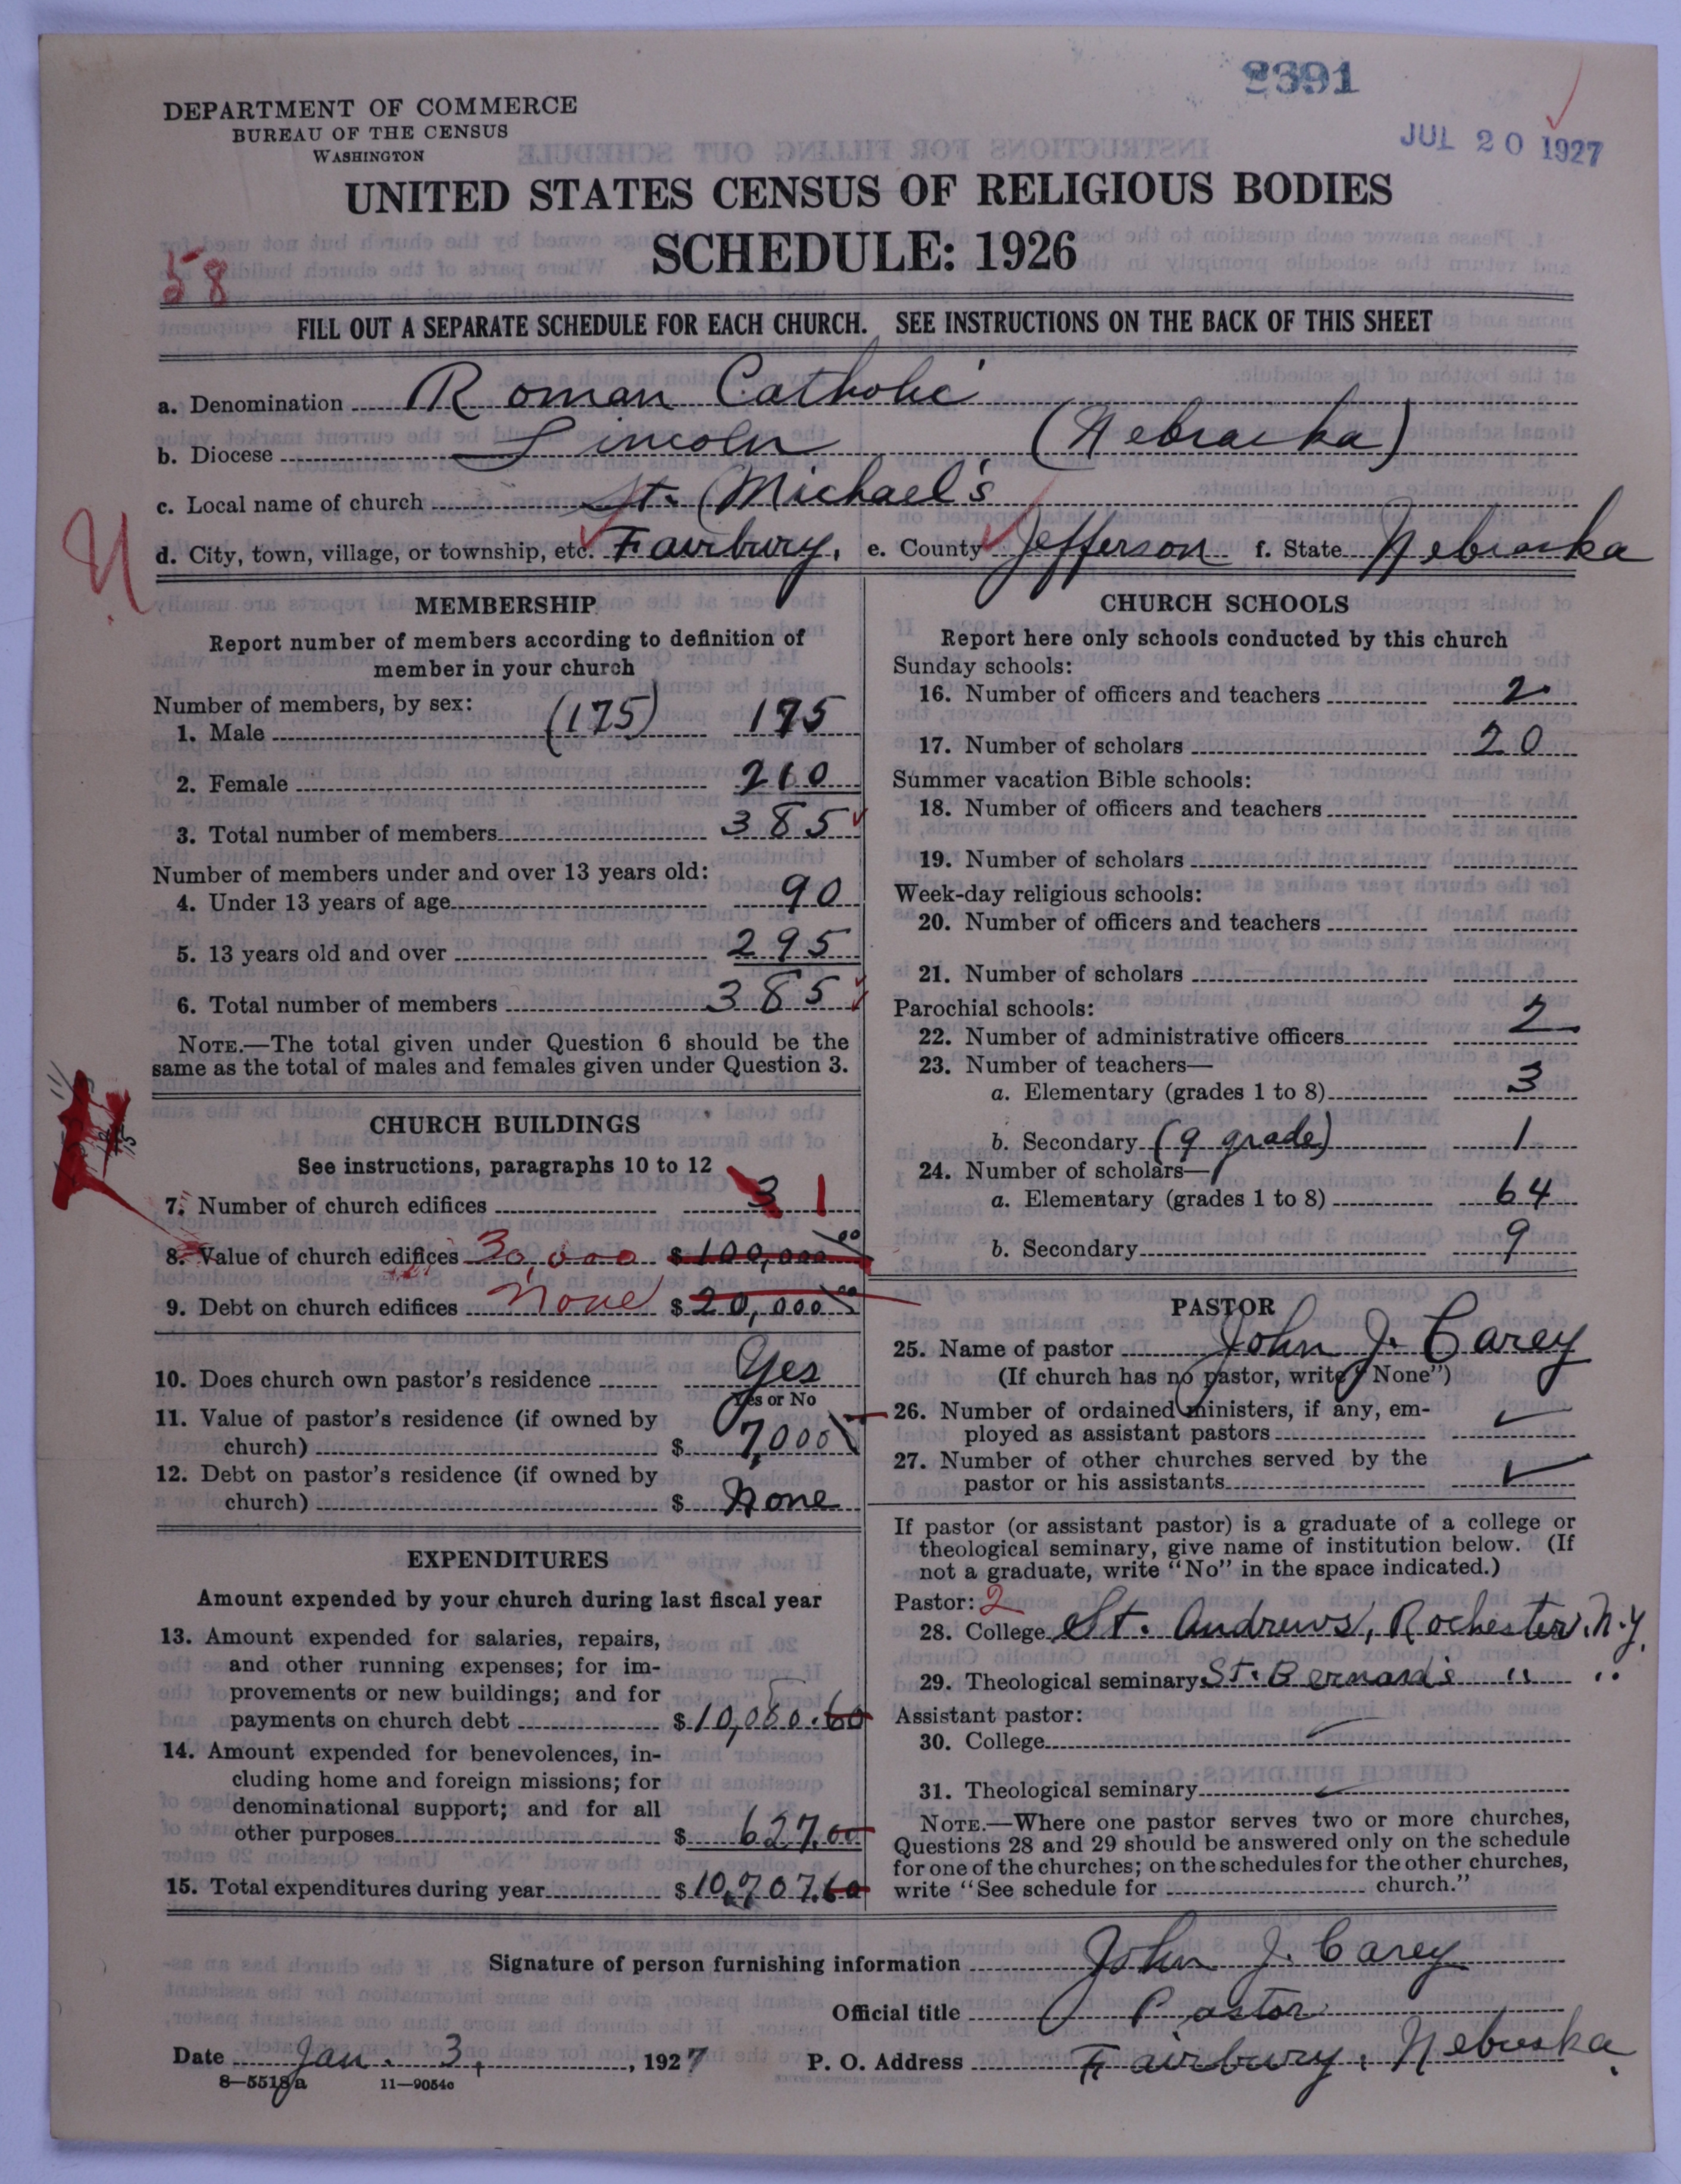 2391
DEPARTMENT OF COMMERCE
BUREAU OF THE CENSUS
WASHINGTON
JUL 20 1927
UNITED STATES CENSUS OF RELIGIOUS BODIES
SCHEDULE: 1926
58
FILL OUT A SEPARATE SCHEDULE FOR EACH CHURCH. SEE INSTRUCTIONS ON THE BACK OF THIS SHEET
a. Denomination Roman Catholic
b. Diocese Lincoln (Nebraska)
c. Local name of church St. Michael's
d. City, town, village, or township, etc. Fairbury, e. County Jefferson f. State Nebraska
MEMBERSHIP
Report number of members according to definition of
member in your church
Number of members, by sex:
1. Male (175) 175
2. Female 210
3. Total number of members 385
Number of members under and over 13 years old:
4. Under 13 years of age 90
5. 13 years old and over 295
6. Total number of members 385
NOTE.—The total given under Question 6 should be the
same as the total of males and females given under Question 3.
CHURCH BUILDINGS
See instructions, paragraphs 10 to 12
7. Number of church edifices 3 1
8. Value of church edifices 30,000 $100,000 00
9. Debt on church edifices None $20,000 00
10. Does church own pastor's residence Yes
Yes or No
11. Value of pastor's residence (if owned by
church) $ 7,000
12. Debt on pastor's residence (if owned by
church) $ None
EXPENDITURES
Amount expended by your church during last fiscal year
13. Amount expended for salaries, repairs,
and other running expenses; for im-
provements or new buildings; and for
payments on church debt $10,080.60
14. Amount expended for benevolences, in-
cluding home and foreign missions; for
denominational support; and for all
other purposes $ 627.00
15. Total expenditures during year $10,707.60
CHURCH SCHOOLS
Report here only schools conducted by this church
Sunday schools:
16. Number of officers and teachers 2
17. Number of scholars 20
Summer vacation Bible schools:
18. Number of officers and teachers
19. Number of scholars
Week-day religious schools:
20. Number of officers and teachers
21. Number of scholars
Parochial schools:
22. Number of administrative officers 2
23. Number of teachers—
a. Elementary (grades 1 to 8) 3
b. Secondary (9 grade) 1
24. Number of scholars—
a. Elementary (grades 1 to 8) 64
b. Secondary 9
PASTOR
25. Name of pastor John J. Carey
(If church has no pastor, write "None")
26. Number of ordained ministers, if any, em-
ployed as assistant pastors
27. Number of other churches served by the
pastor or his assistants
If pastor (or assistant pastor) is a graduate of a college or
theological seminary, give name of institution below. (If
not a graduate, write "No" in the space indicated.)
Pastor: 2
28. College St. Andrews, Rochester, N.Y.
29. Theological seminary St. Bernard's " "
Assistant pastor:
30. College
31. Theological seminary
NOTE.—Where one pastor serves two or more churches,
Questions 28 and 29 should be answered only on the schedule
for one of the churches; on the schedules for the other churches,
write "See schedule for church."
Signature of person furnishing information John J. Carey
Official title Pastor
Date Jan. 3, 1927 P. O. Address Fairbury, Nebraska.
8—5518a 11—9054c